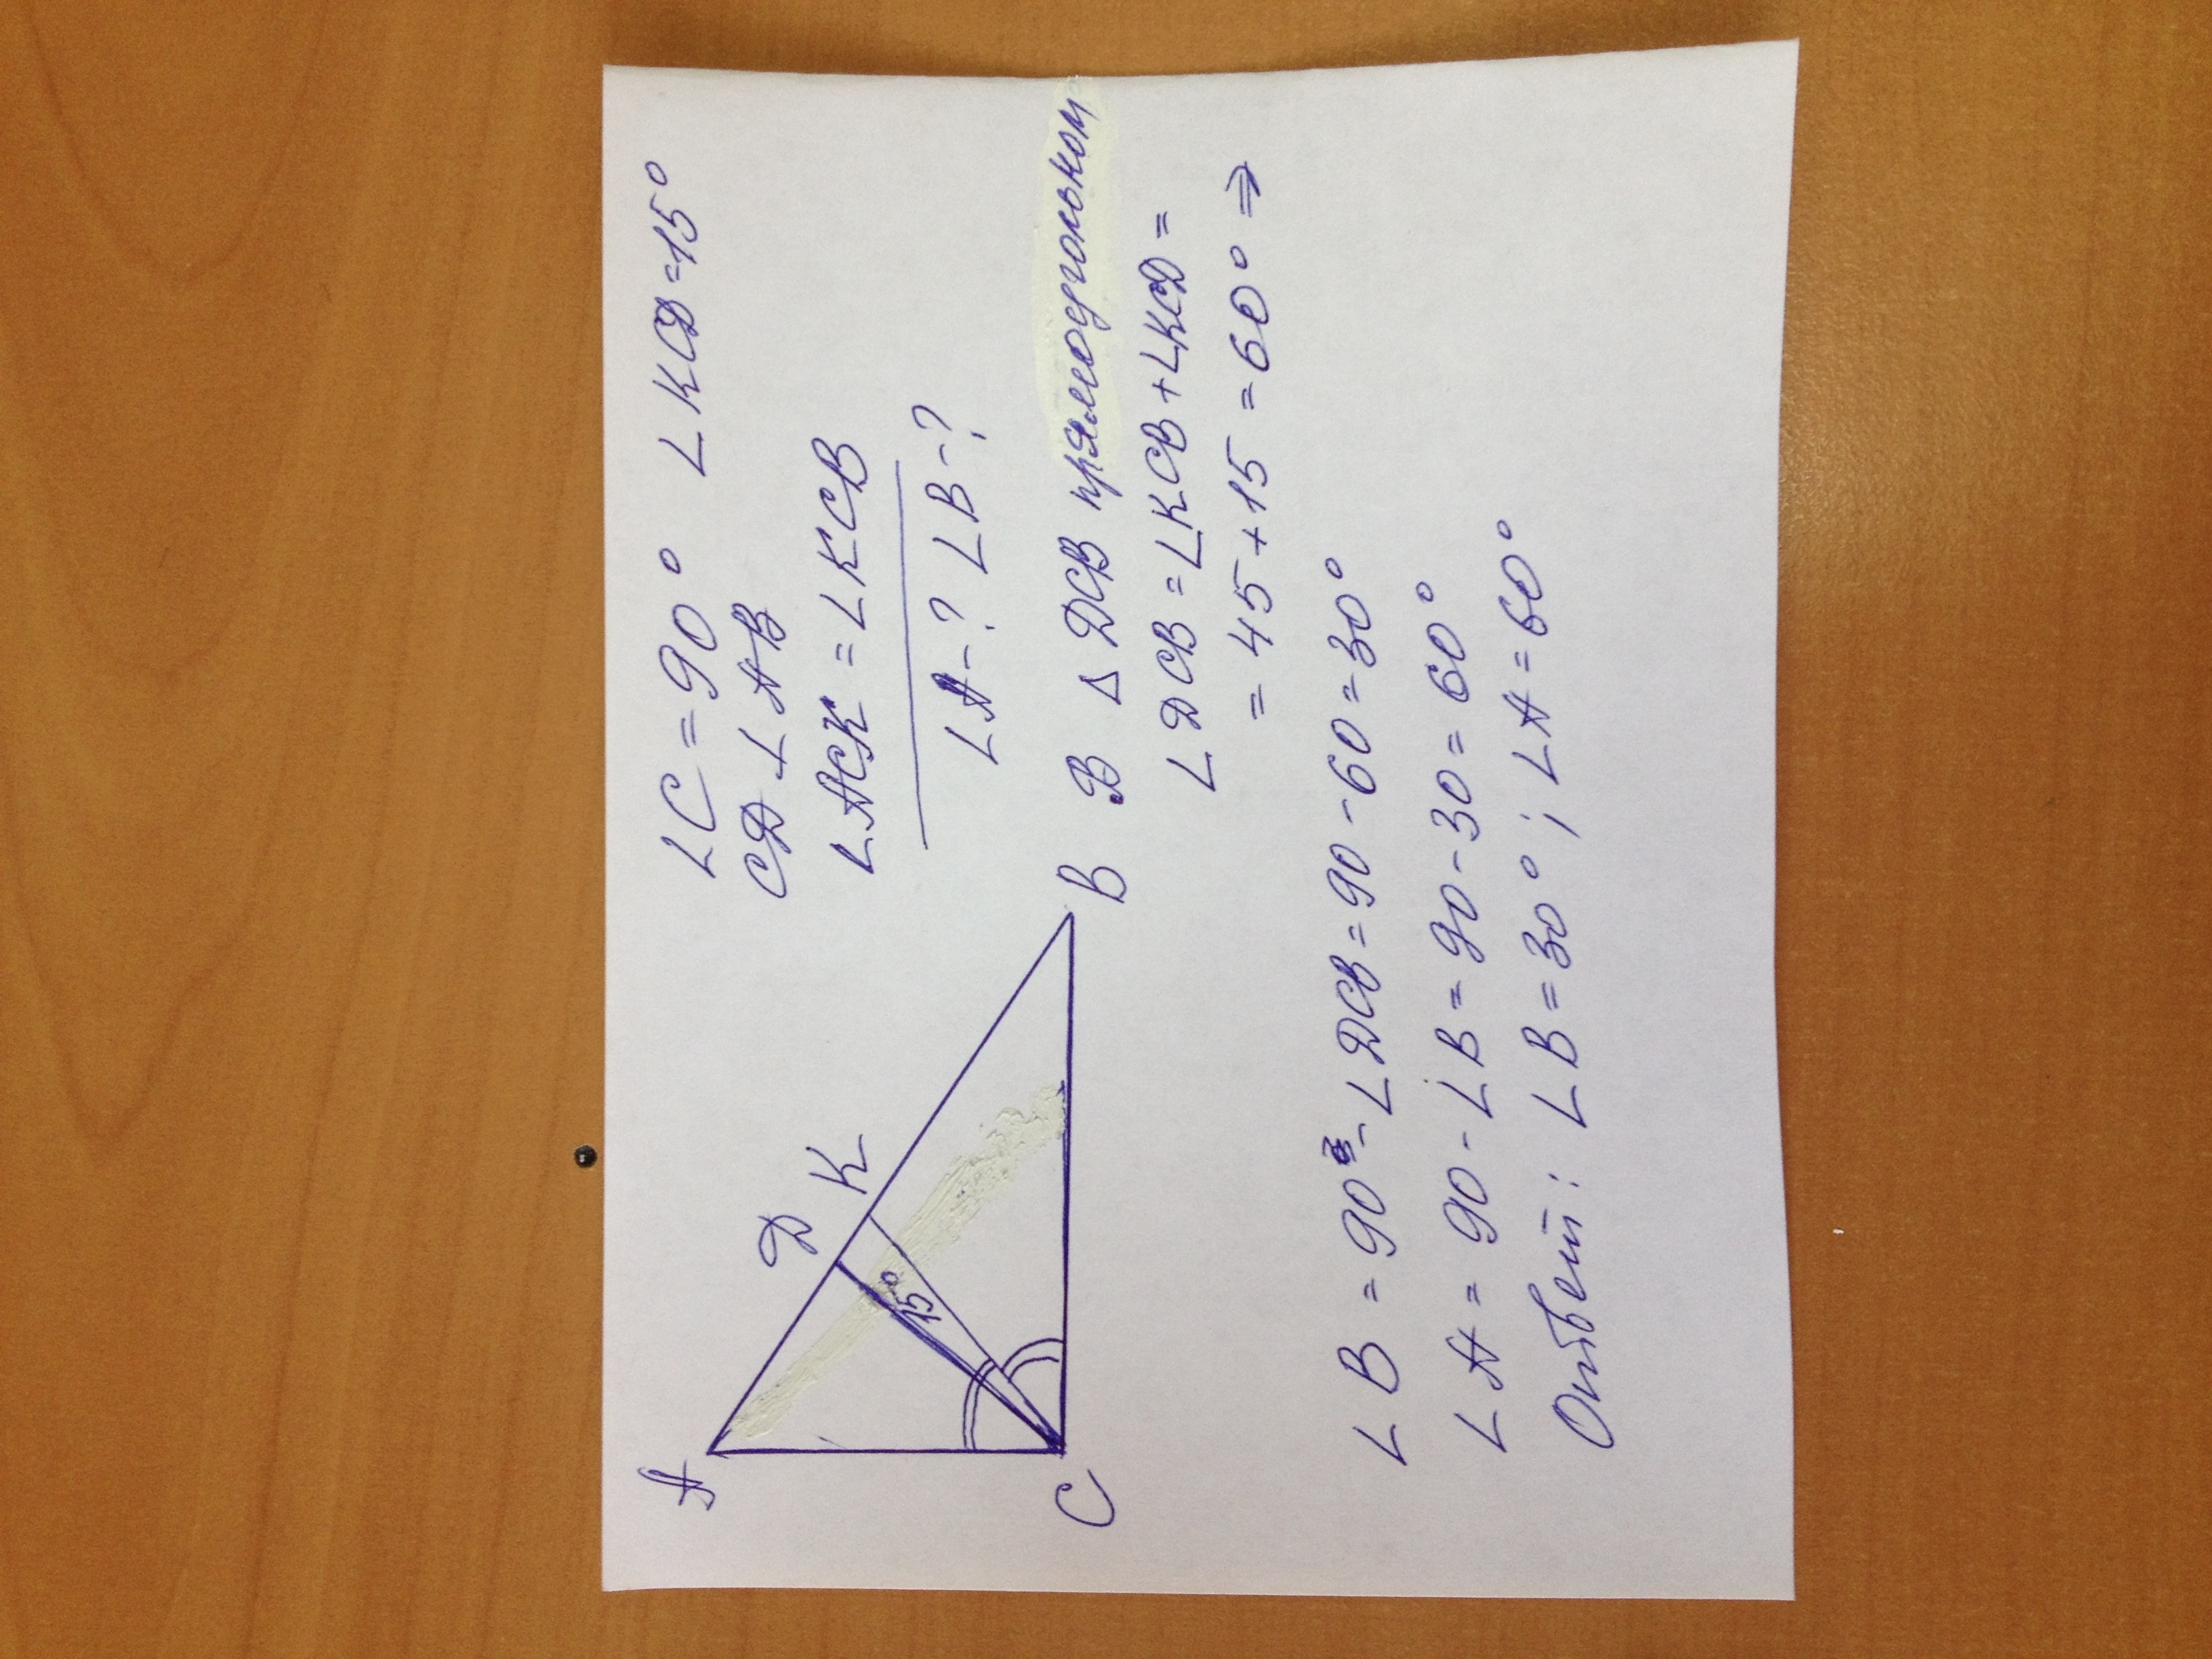 ∠C = 90° ∠KCD = 15°
CD ⊥ AB
∠ACK = ∠KCB
∠A - ? ∠B - ?
A
D
K
15°
C
B
В Δ DCB прямоугольном
∠DCB = ∠KCB + ∠KCD =
= 45 + 15 = 60° ⇒
∠B = 90° - ∠DCB = 90 - 60 = 30°
∠A = 90 - ∠B = 90 - 30 = 60°
Ответ: ∠B = 30°; ∠A = 60°